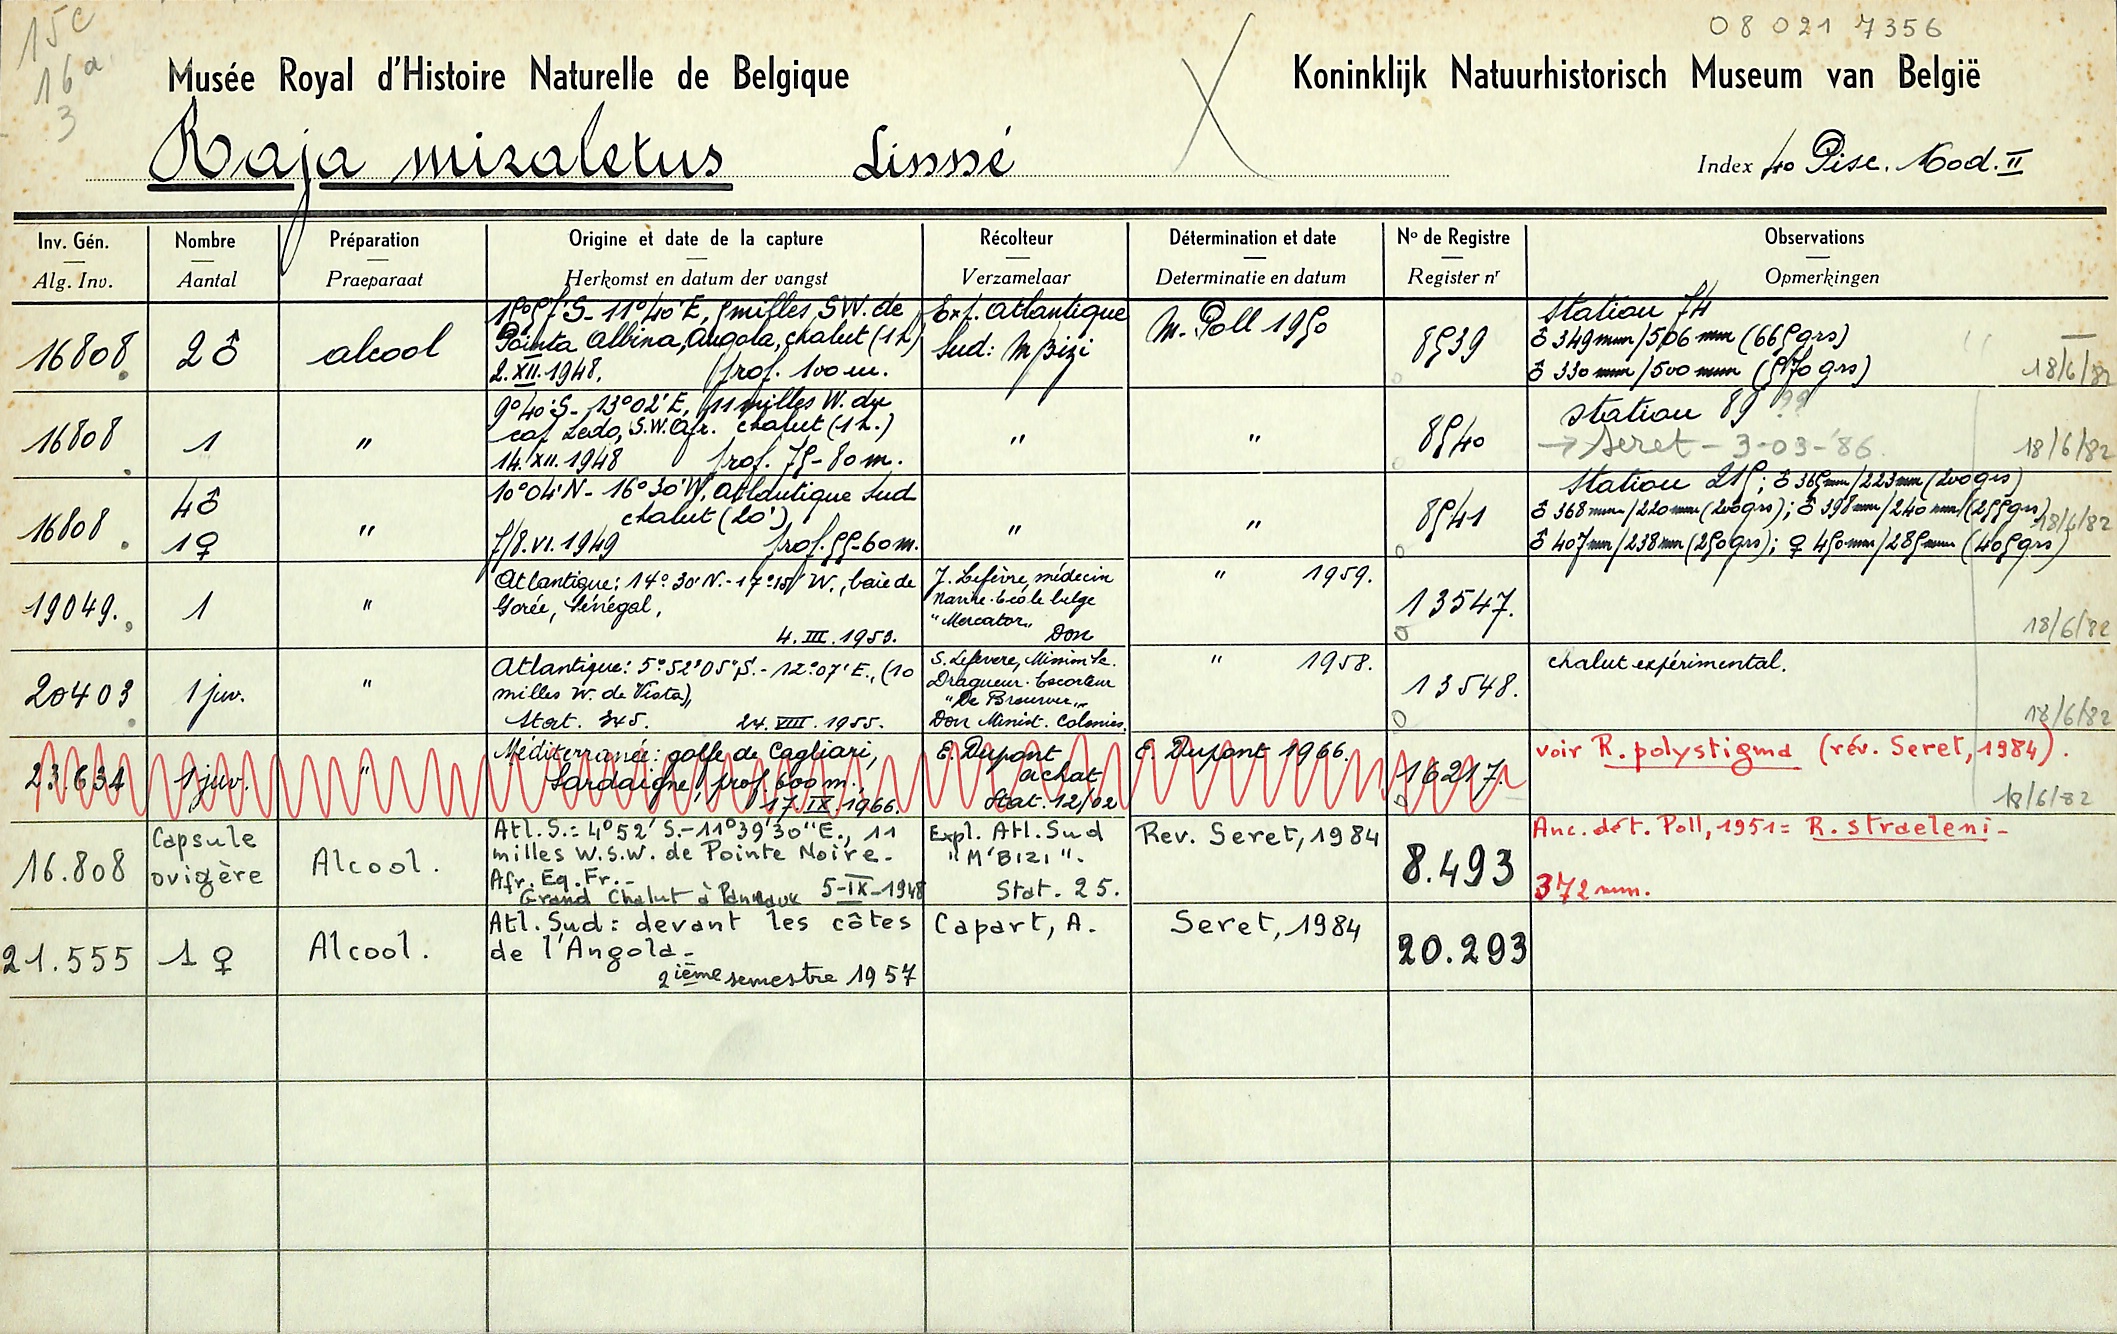 15c
16a
3
08 021 7356
Musée Royal d'Histoire Naturelle de Belgique
Koninklijk Natuurhistorisch Museum van België
Raja miraletus Linné
Index 40 Pisc. Mod. II
Inv. Gén. Nombre Préparation Origine et date de la capture Récolteur Détermination et date No de Registre Observations
Alg. Inv. Aantal Praeparaat Herkomst en datum der vangst Verzamelaar Determinatie en datum Register nr Opmerkingen
16808 2♂ alcool
15°57'S - 11°40'E, 5 milles, S.W. de
Pointa Albina, Angola, chalut (1 h)
2.XII.1948. prof. 100 m.
Exp. Atlantique
Sud: M'Bizi
M. Poll 1950
8539
Station 74
♂ 349 mm/506 mm (665 grs)
♂ 330 mm/500 mm (570 grs)
18/6/82
16808 1 "
9°40'S - 13°02'E, 11 milles W. du
cap Ledo, S.W. Afr. chalut (1 h.)
14.XII.1948 prof. 75-80 m.
" "
8540
Station 89 ??
→ Seret - 3-03-'86
18/6/82
16808 4♂
1♀
"
10°04'N - 16°30'W, Atlantique Sud
chalut (20')
7/8.VI.1949 prof. 55-60 m.
" "
8541
Station 215; ♂ 365 mm/223 mm (200 grs)
♂ 368 mm/220 mm (200 grs); ♂ 398 mm/240 mm (255 grs)
♂ 407 mm/238 mm (250 grs); ♀ 450 mm/285 mm (405 grs)
18/6/82
19049. 1 "
Atlantique: 14°.30'N.-17°.15' W., baie de
Gorée, Sénégal,
4.III.1953.
J. Lefèvre, médecin
navire-école belge
"Mercator"
Don
" 1959.
13547.
18/6/82
20403 1 juv. "
Atlantique: 5°.52'05"S.-12°.07'E., (10
milles W. de Vista),
Stat. 345. 24.VIII.1955.
S. Lefevere,
Dragueur-Escorteur
"De Brouwer"
Don Minist. Colonies.
" 1958.
13548.
chalut expérimental.
18/6/82
23.634 1 juv. "
Méditerranée: golfe de Cagliari,
Sardaigne, prof. 600 m.,
17.IX.1966.
E. Dupont
achat
Stat. 12/02
E. Dupont 1966.
16217.
voir R. polystigma (rév. Seret, 1984).
18/6/82
16.808
Capsule
ovigère
Alcool.
Atl. S.: 4°52' S.-11°39'30"E., 11
milles W.S.W. de Pointe Noire.
Afr. Eq. Fr.-
Grand Chalut à Panneaux 5-IX-1948
Expl. Atl. Sud
"M'BIZI".
Stat. 25.
Rev. Seret, 1984
8.493
Anc. dét. Poll, 1951 = R. straeleni-
372 mm.
21.555 1 ♀ Alcool.
Atl. Sud: devant les côtes
de l'Angola-
2ième semestre 1957
Capart, A.
Seret, 1984
20.293